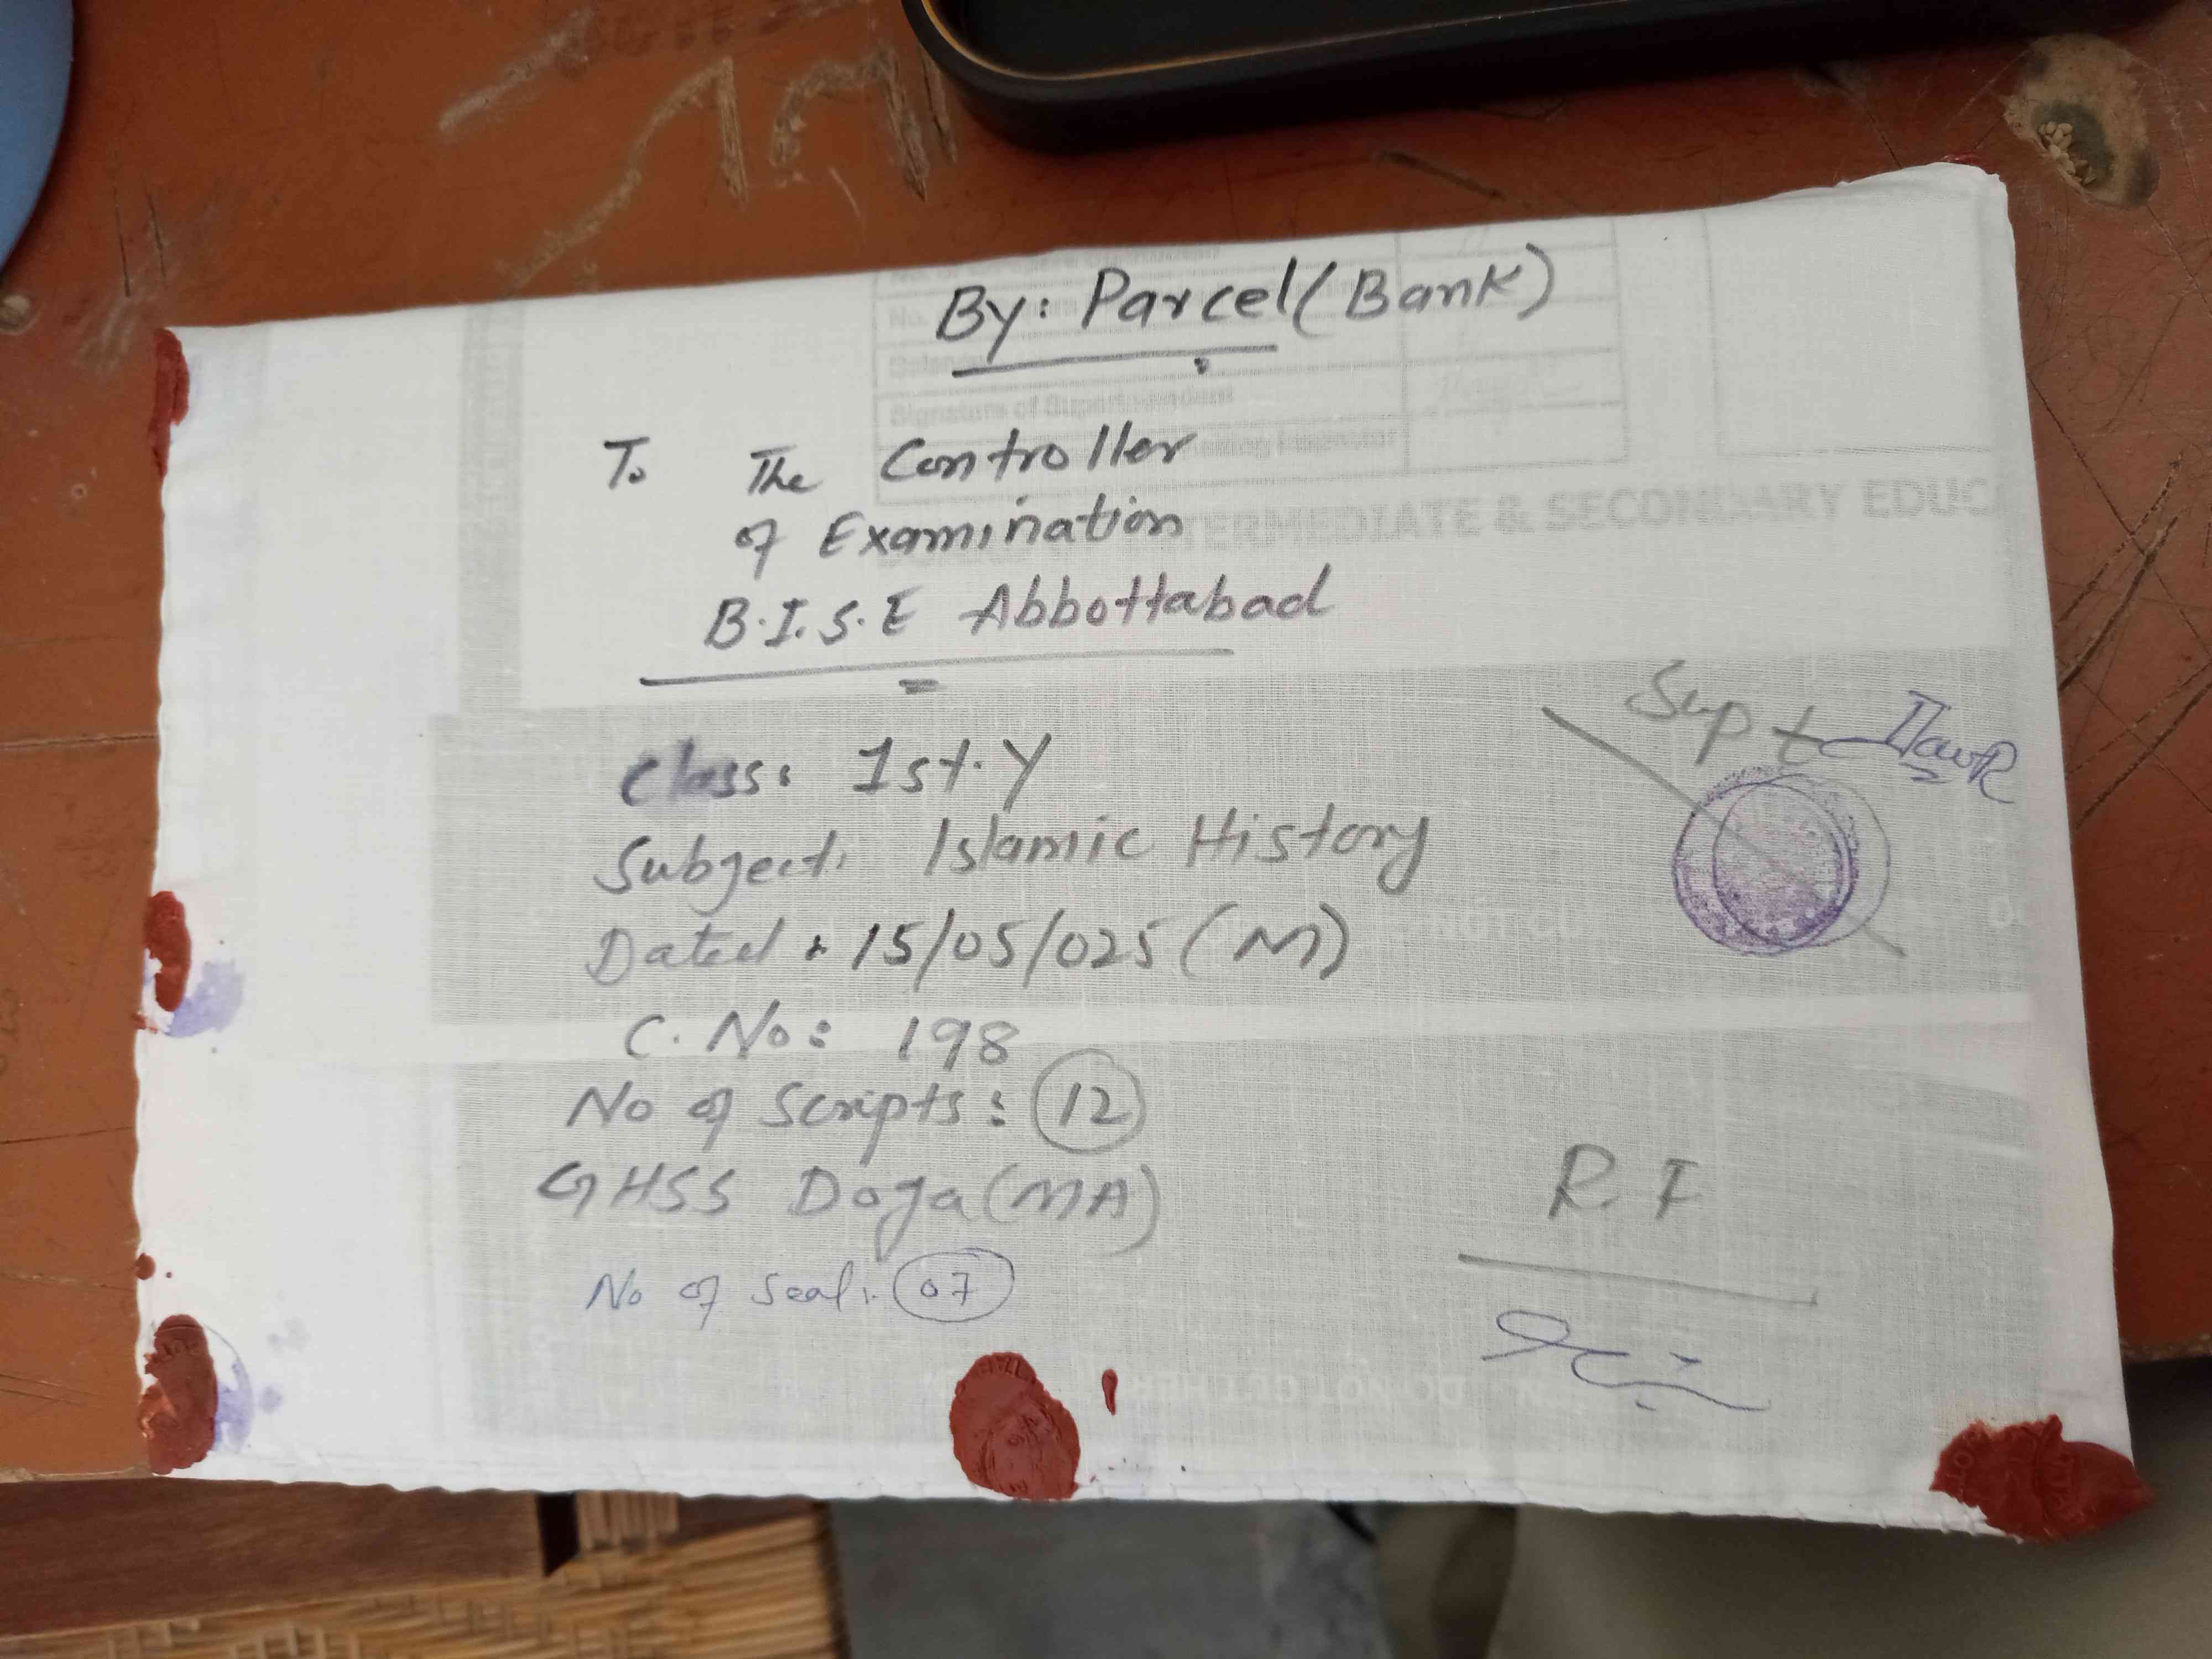 By: Parcel (Bank)
To The Controller
of Examination
B.I.S.E Abbottabad
Class: 1st.Y
Subject: Islamic History
Dated: 15/05/025 (M)
C. No: 198
No of Scripts: 12
GHSS Doga (MA)
No of Seal: 07
Supt
R. I
Signature of Superintendent
INTERMEDIATE & SECONDARY EDUC